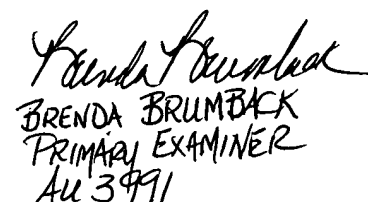 Brenda Brumback
BRENDA BRUMBACK
PRIMARY EXAMINER
AU 3991